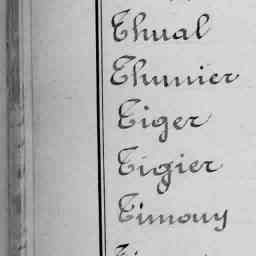 Thual
Thunier
Tiger
Tigier
Timouy